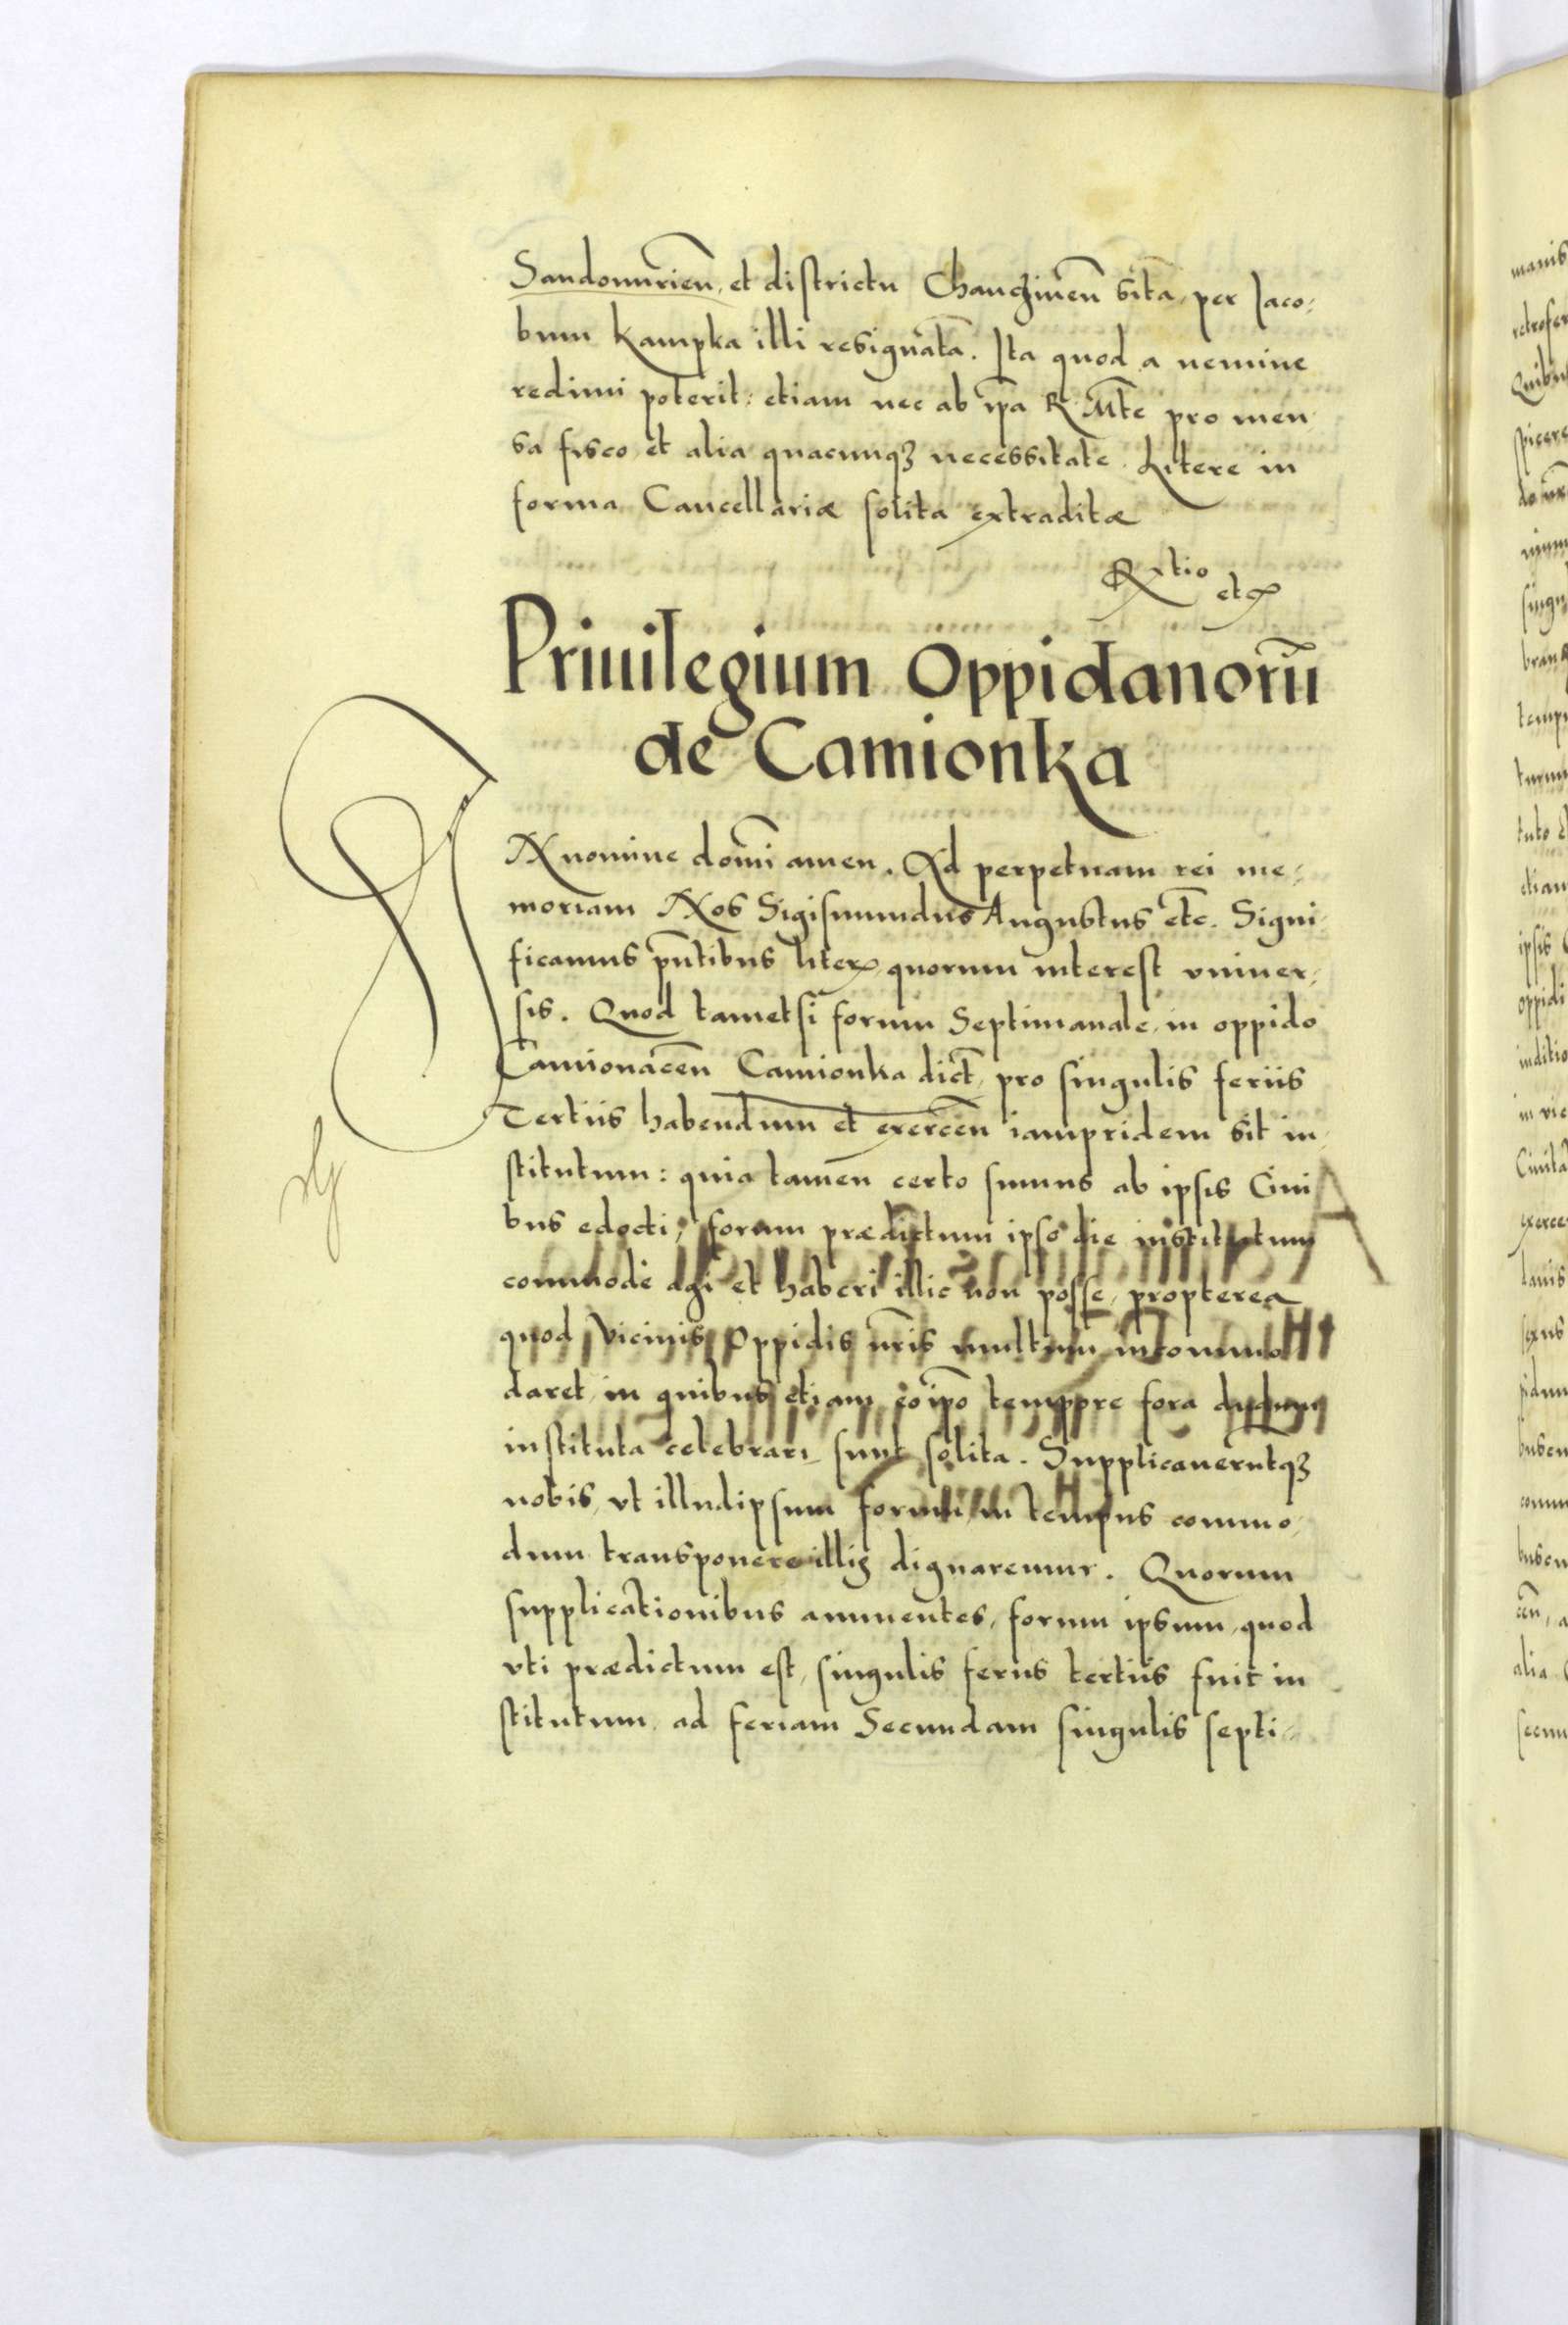 Sandomirien̄, et districtu Chanczinen̄ sita, per Jaco:
bum Kampka illi resignata. Ita quod a nemine
redimi poterit: etiam nec ab ip̄a R. Mt̄e pro men
sa fisco et alia quacunqꝫ necessitate. Litere in
forma Cancellariæ solita extraditæ
Rxtio etcꝫ
Priuilegium Oppidanorū
de Camionka
IN nomine domī amen. Ad perpetuam rei me:
moriam Nos Sigismundus Augustus etc̄. Signi
ficamus pn̄tibus literꝝ quorum interest vniuer:
sis. Quod tametsi forum Septimanale, in oppido
Camionacen̄ Camionka dict̄, pro singulis feriis
Tertiis habendum et exercen̄ iampridem sit in
stitutum: quia tamen certo sumus ab ipsis Ciui
bus edocti, forum prædictum ipso die institutum
commode agi et haberi illic non posse, propterea
quod vicinis Oppidis nr̄is multum incommo
daret, in quibus etiam eo ip̄o tempore fora dudum
instituta celebrari sunt solita. Supplicauerūtqꝫ
nobis, vt illudipsum forum, in tempus commo:
dum transponere illis dignaremur. Quorum
supplicationibus annuentes, forum ipsum, quod
vti prædictum est, singulis feriis tertiis fuit in
stitutum, ad feriam Secundam singulis septi: